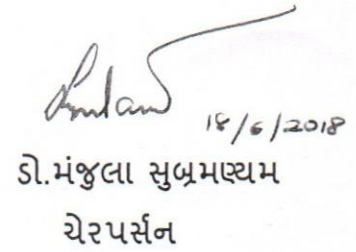 18/6/2018
ડો.મંજુલા સુબ્રમણ્યમ
ચેરપર્સન